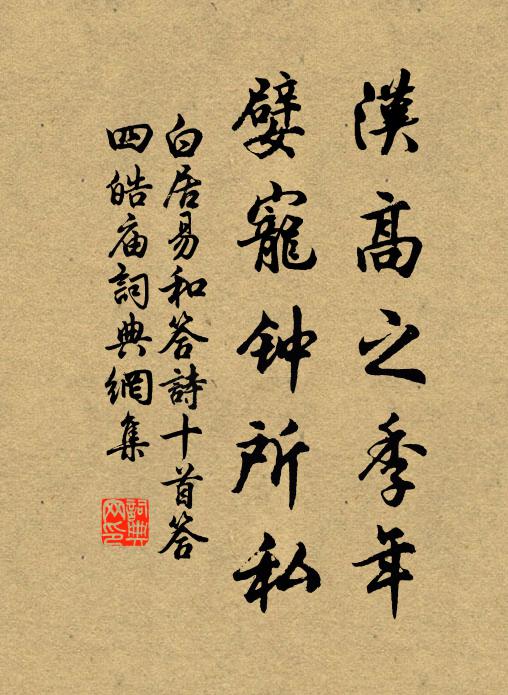 漢高之季年
嬖寵钟所私
白居易和答詩十首答
四皓庙詞典網集
詞典
网印